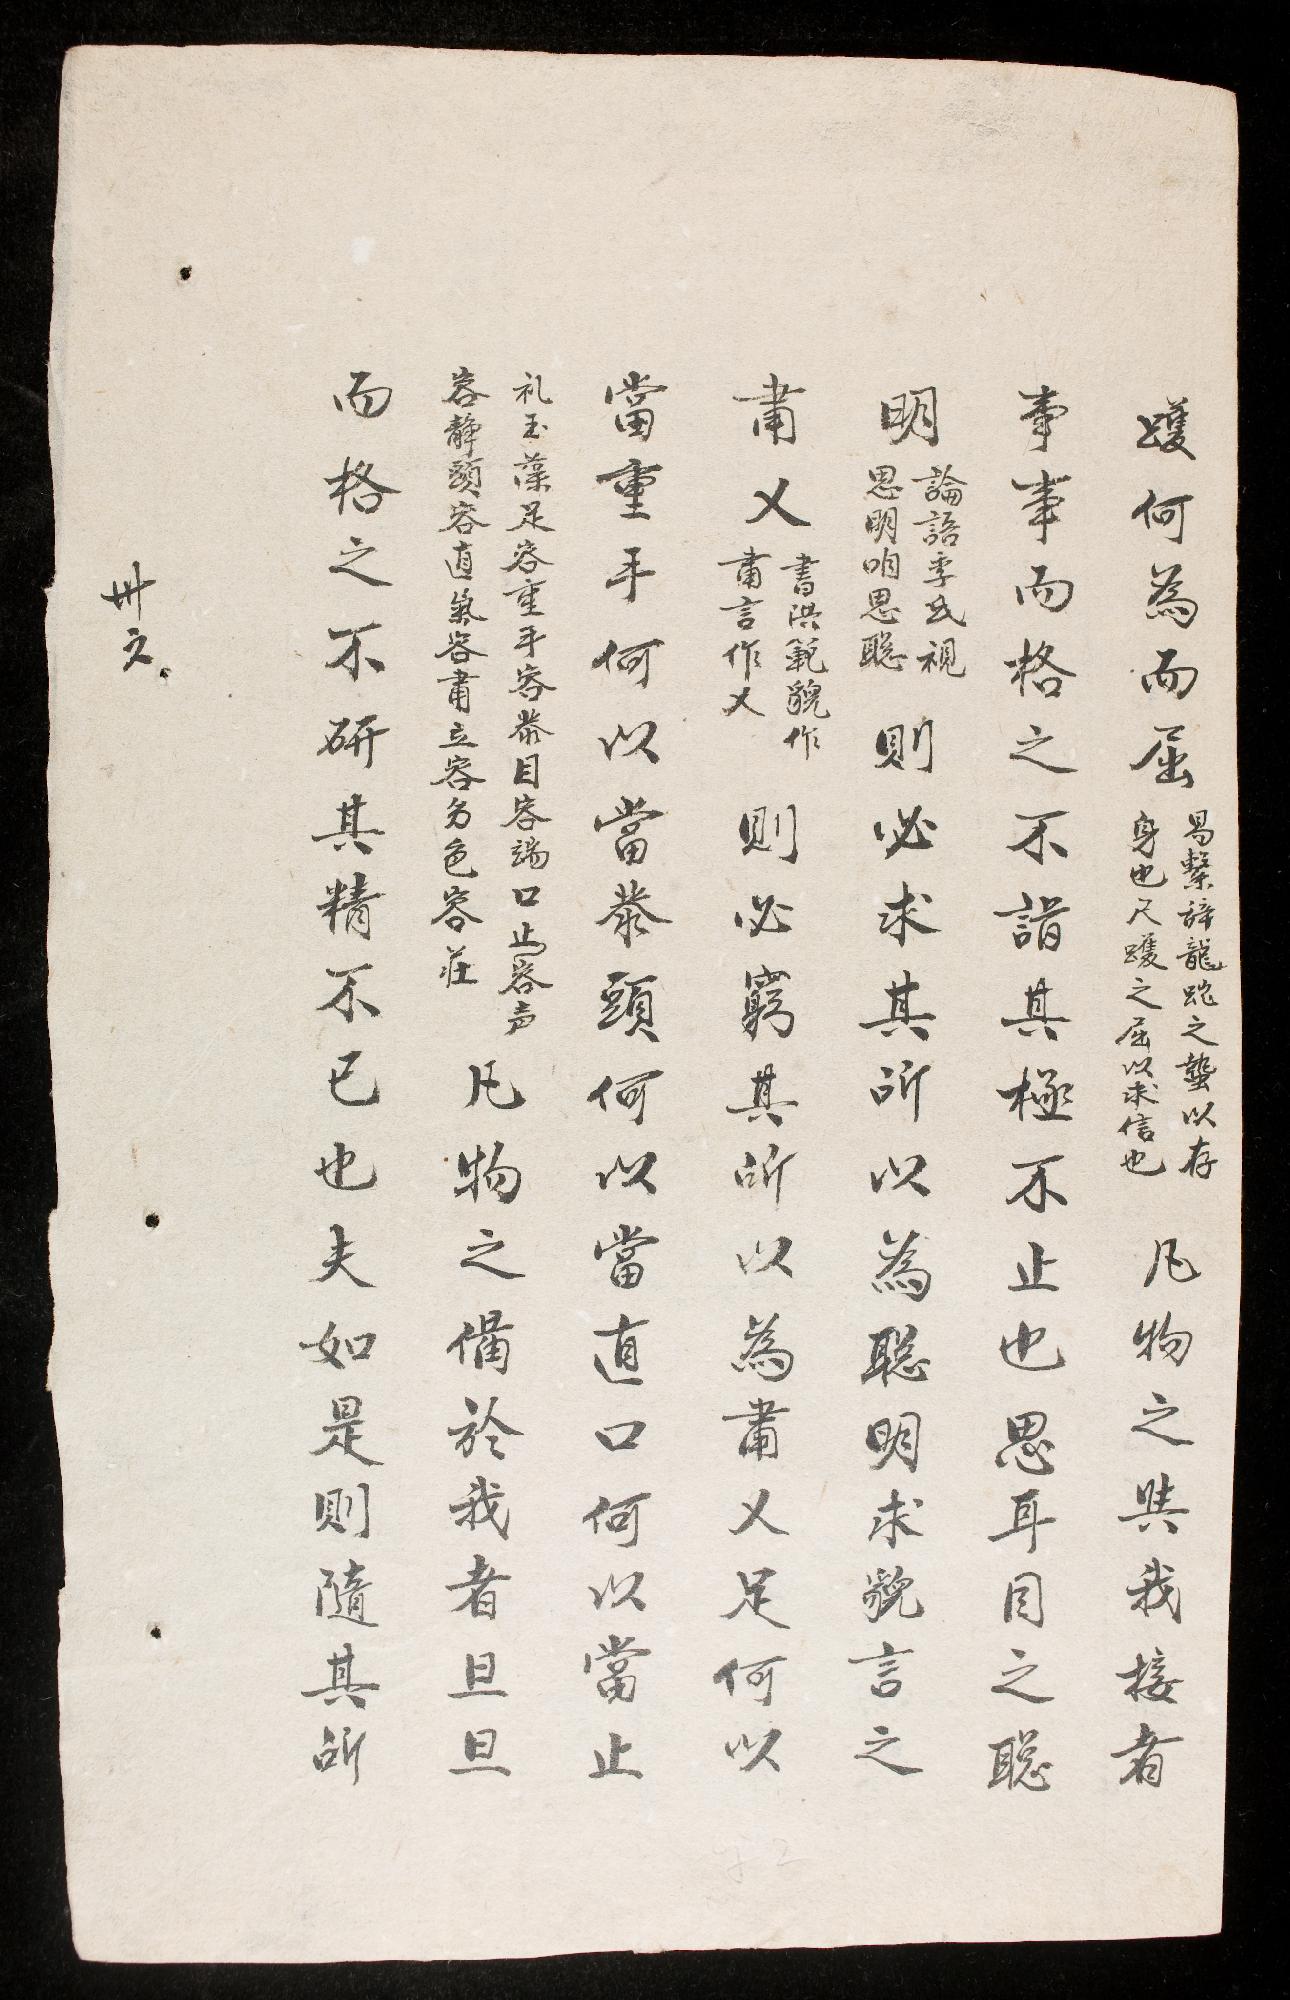 蠖何為而屈
易繫辞龍蛇之蟄以存
身也尺蠖之屈以求信也
凡物之與我接者
事事而格之不詣其極不止也思耳目之聡
明
論語季氏視
思明聴思聡
則必求其所以為聡明求貌言之
肅乂
書洪範貌作
肅言作乂
則必窮其所以為肅乂足何以
當重手何以當恭頭何以當直口何以當止
礼玉藻足容重手容恭目容端口容止声
容静頭容直氣容肅立容徳色容莊
凡物之備於我者旦旦
而格之不研其精不已也夫如是則隨其所
卅六